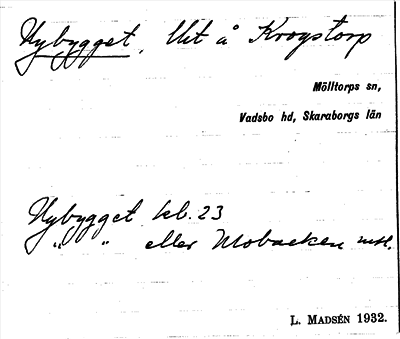 Nybygget, Uht å Krogstorp
Mölltorps sn,
Vadsbo hd, Skaraborgs län
Nybygget kl. 23
" " eller Mobacken
L. MADSÉN 1932.